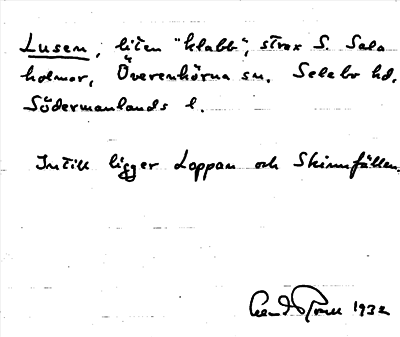 Lusen, liten "klabb", strax S. Sala
holmar, Överenhörna sn. Selebo hd.
Södermanlands l.
Intill ligger Loppan och Skinnfällen.
1932